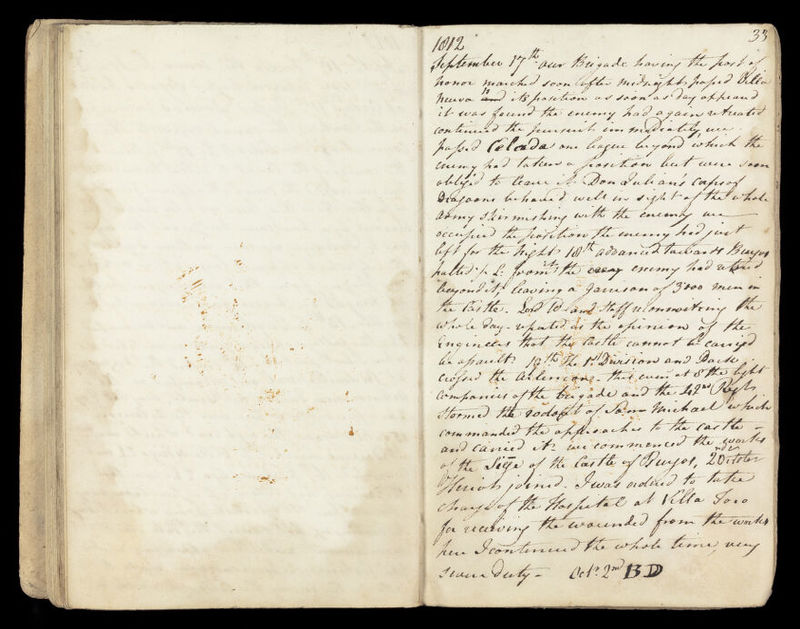 33
1812
September 17th our Brigade having the post of
honor marched soon after midnight, passed Villa
nueva and its position as soon as day appeard
it was found the enemy had again retreated
continued the pursuit immediately we
passed Celada one league beyond which the
enemy had taken a position but were soon
obliged to leave it Don Julian's corps of
Dragoons behaved well in sight of the whole
army skirmishing with the enemy we
occupied the position the enemy had just
left for the Night. 18th advanced towards Burgos
halted from it the enemy had retired
beyond it, leaving a garrison of 3000 men in
the Castle. Lord W and Staff reconnoitring the
whole day. reputed as the opinion of the
Engineers that the Castle cannot be carried
by assault. 19th The 1st Division and Pack
crossed the Arlanzon. this even at 8 the light
companies of the brigade and the 42nd Regt
stormed the redoubt of San Michael which
commanded the approaches to the castle
and carried it. we commenced the works
of the Siege of the Castle of Burgos, 2nd October
joined. I was ordered to take
charge of the Hospital at Villa Toro
for receiving the wounded from the works
here I continued the whole time very
severe Duty - Octr. 2nd B D